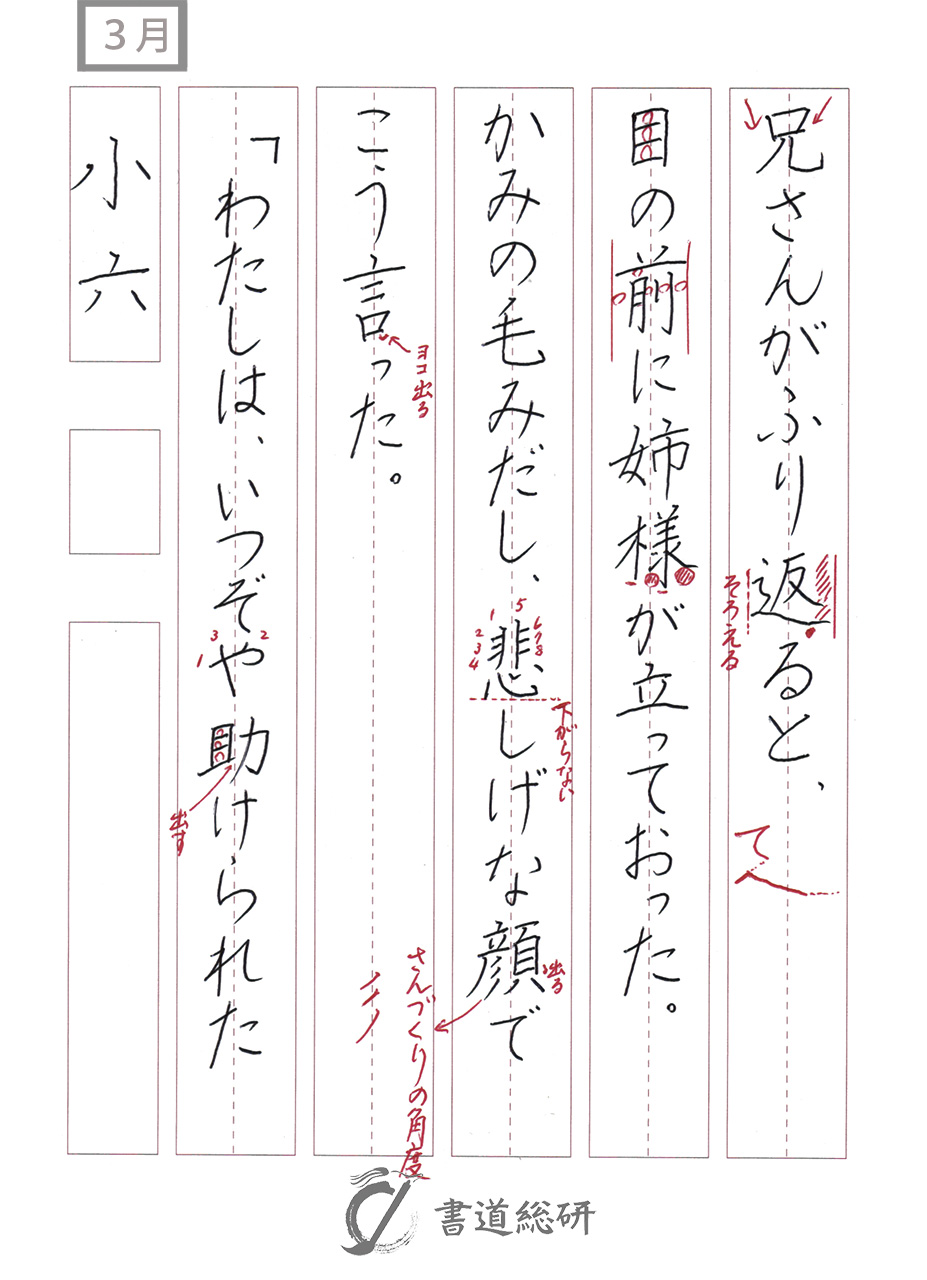 3月
兄さんがふり返ると、
そろえる
目の前に姉様が立っておった。
かみの毛みだし、悲しげな顔で
1
2
3
4
5
6
7
8
下がらない
出る
こう言った。
ヨコ出る
さんづくりの角度
「わたしは、いつぞや助けられた
1
2
3
出す
小六
書道総研